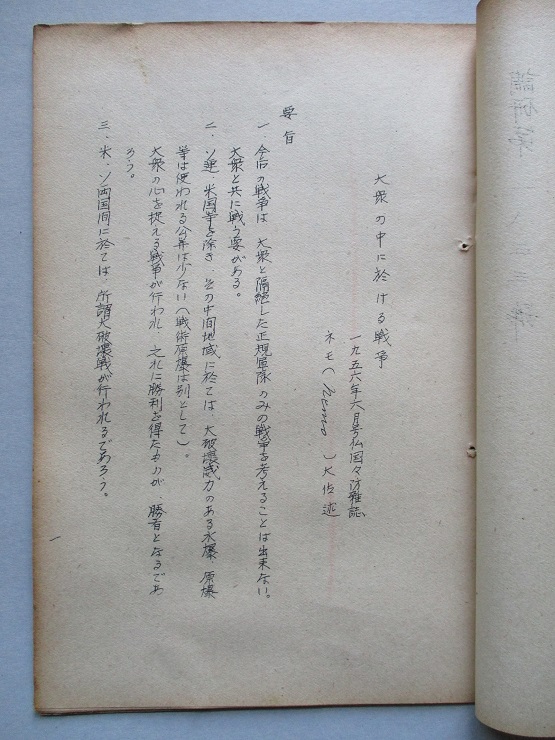 大衆の中に於ける戦争
一九五六年六月号仏国々防雑誌
ネモ(Nemo)大佐述
要旨
一、今后の戦争は、大衆と隔絶した正規軍隊のみの戦争を考えることは出来ない。
大衆と共に戦う要がある。
二、ソ連、米国等を除き、その中間地域に於ては、大破壊威力のある水爆、原爆
等は使われる公算は少ない(戦術原爆は別として)。
大衆の心を捉える戦争が行われ、之れに勝利を得たものが、勝者となるであ
ろう。
三、米、ソ両国間に於ては、所謂大破壊戦が行われるであろう。
一